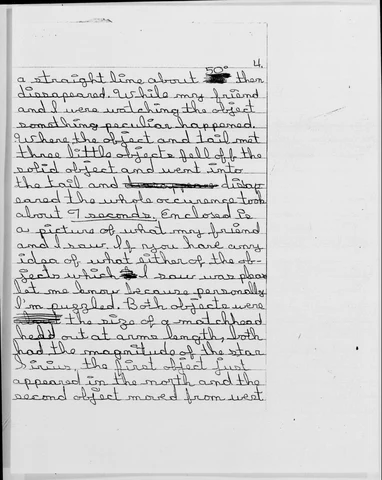 4.
a straight line about 50° then
dissapeared. While my friend
and I were watching the object
something peculiar happened.
Where the object and tail met
three little objects fell off the
solid object and went into
the tail and disap-
eared the whole occurence took
about 7 seconds. Enclosed is
a picture of what my friend
and I saw. If you have any
idea of what either of the ob-
jects which I saw was pleas
let me know because personally
I'm puzzled. Both objects were
the size of a matchhead
held out at arms length, both
had the magnitude of the star
Sirius, the first object just
appeared in the north and the
second object moved from west